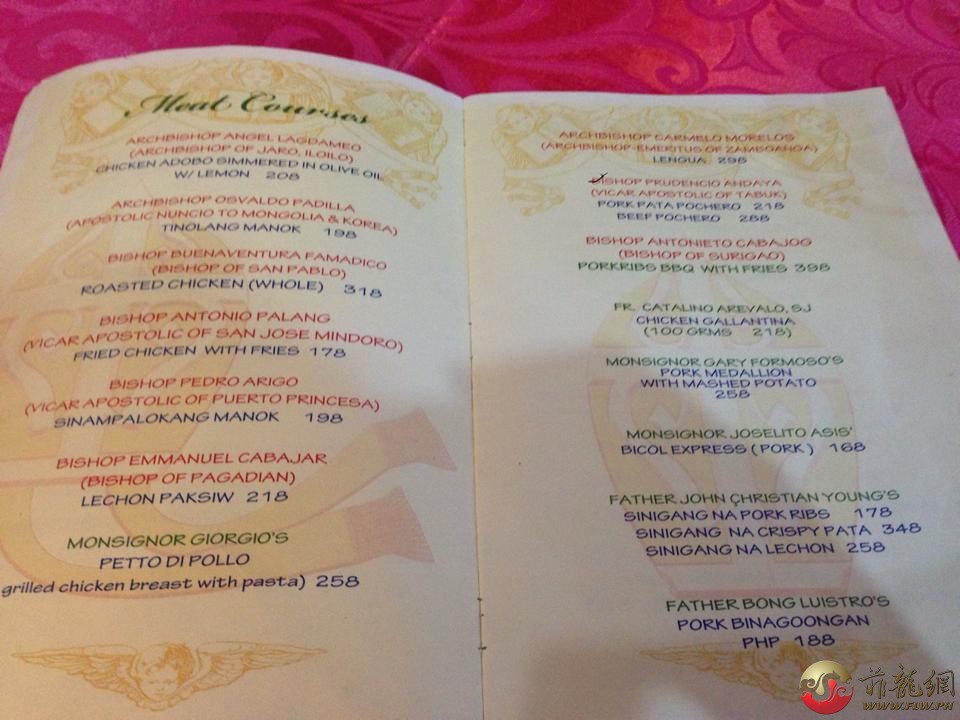 Meat Courses
ARCHBISHOP ANGEL LAGDAMEO
(ARCHBISHOP OF JARO, ILOILO)
CHICKEN ADOBO SIMMERED IN OLIVE OIL
W/ LEMON 208
ARCHBISHOP OSVALDO PADILLA
(APOSTOLIC NUNCIO TO MONGOLIA & KOREA)
TINOLANG MANOK 198
BISHOP BUENAVENTURA FAMADICO
(BISHOP OF SAN PABLO)
ROASTED CHICKEN (WHOLE) 318
BISHOP ANTONIO PALANG
(VICAR APOSTOLIC OF SAN JOSE MINDORO)
FRIED CHICKEN WITH FRIES 178
BISHOP PEDRO ARIGO
(VICAR APOSTOLIC OF PUERTO PRINCESA)
SINAMPALOKANG MANOK 198
BISHOP EMMANUEL CABAJAR
(BISHOP OF PAGADIAN)
LECHON PAKSIW 218
MONSIGNOR GIORGIO'S
PETTO DI POLLO
grilled chicken breast with pasta) 258
ARCHBISHOP CARMELO MORELOS
(ARCHBISHOP-EMERITUS OF ZAMBOANGA)
LENGUA 298
BISHOP PRUDENCIO ANDAYA
(VICAR APOSTOLIC OF TABUK)
PORK PATA POCHERO 218
BEEF POCHERO 288
BISHOP ANTONIETO CABAJOG
(BISHOP OF SURIGAO)
PORKRIBS BBQ WITH FRIES 398
FR. CATALINO AREVALO, SJ
CHICKEN GALLANTINA
(100 GRMS 218)
MONSIGNOR GARY FORMOSO'S
PORK MEDALLION
WITH MASHED POTATO
258
MONSIGNOR JOSELITO ASIS'
BICOL EXPRESS (PORK) 168
FATHER JOHN CHRISTIAN YOUNG'S
SINIGANG NA PORK RIBS 178
SINIGANG NA CRISPY PATA 348
SINIGANG NA LECHON 258
FATHER BONG LUISTRO'S
PORK BINAGOONGAN
PHP 188
菲龍網
WWW.FLW.PH